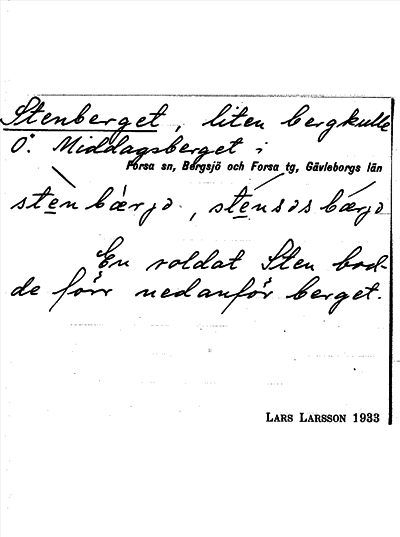 Stenberget, liten bergkulle
Ö. Middagsberget i
Forsa sn, Bergsjö och Forsa tg, Gävleborgs län
stèn bærjə, sténsəs bærjə
En soldat Sten bod-
de förr nedanför berget.
LARS LARSSON 1933